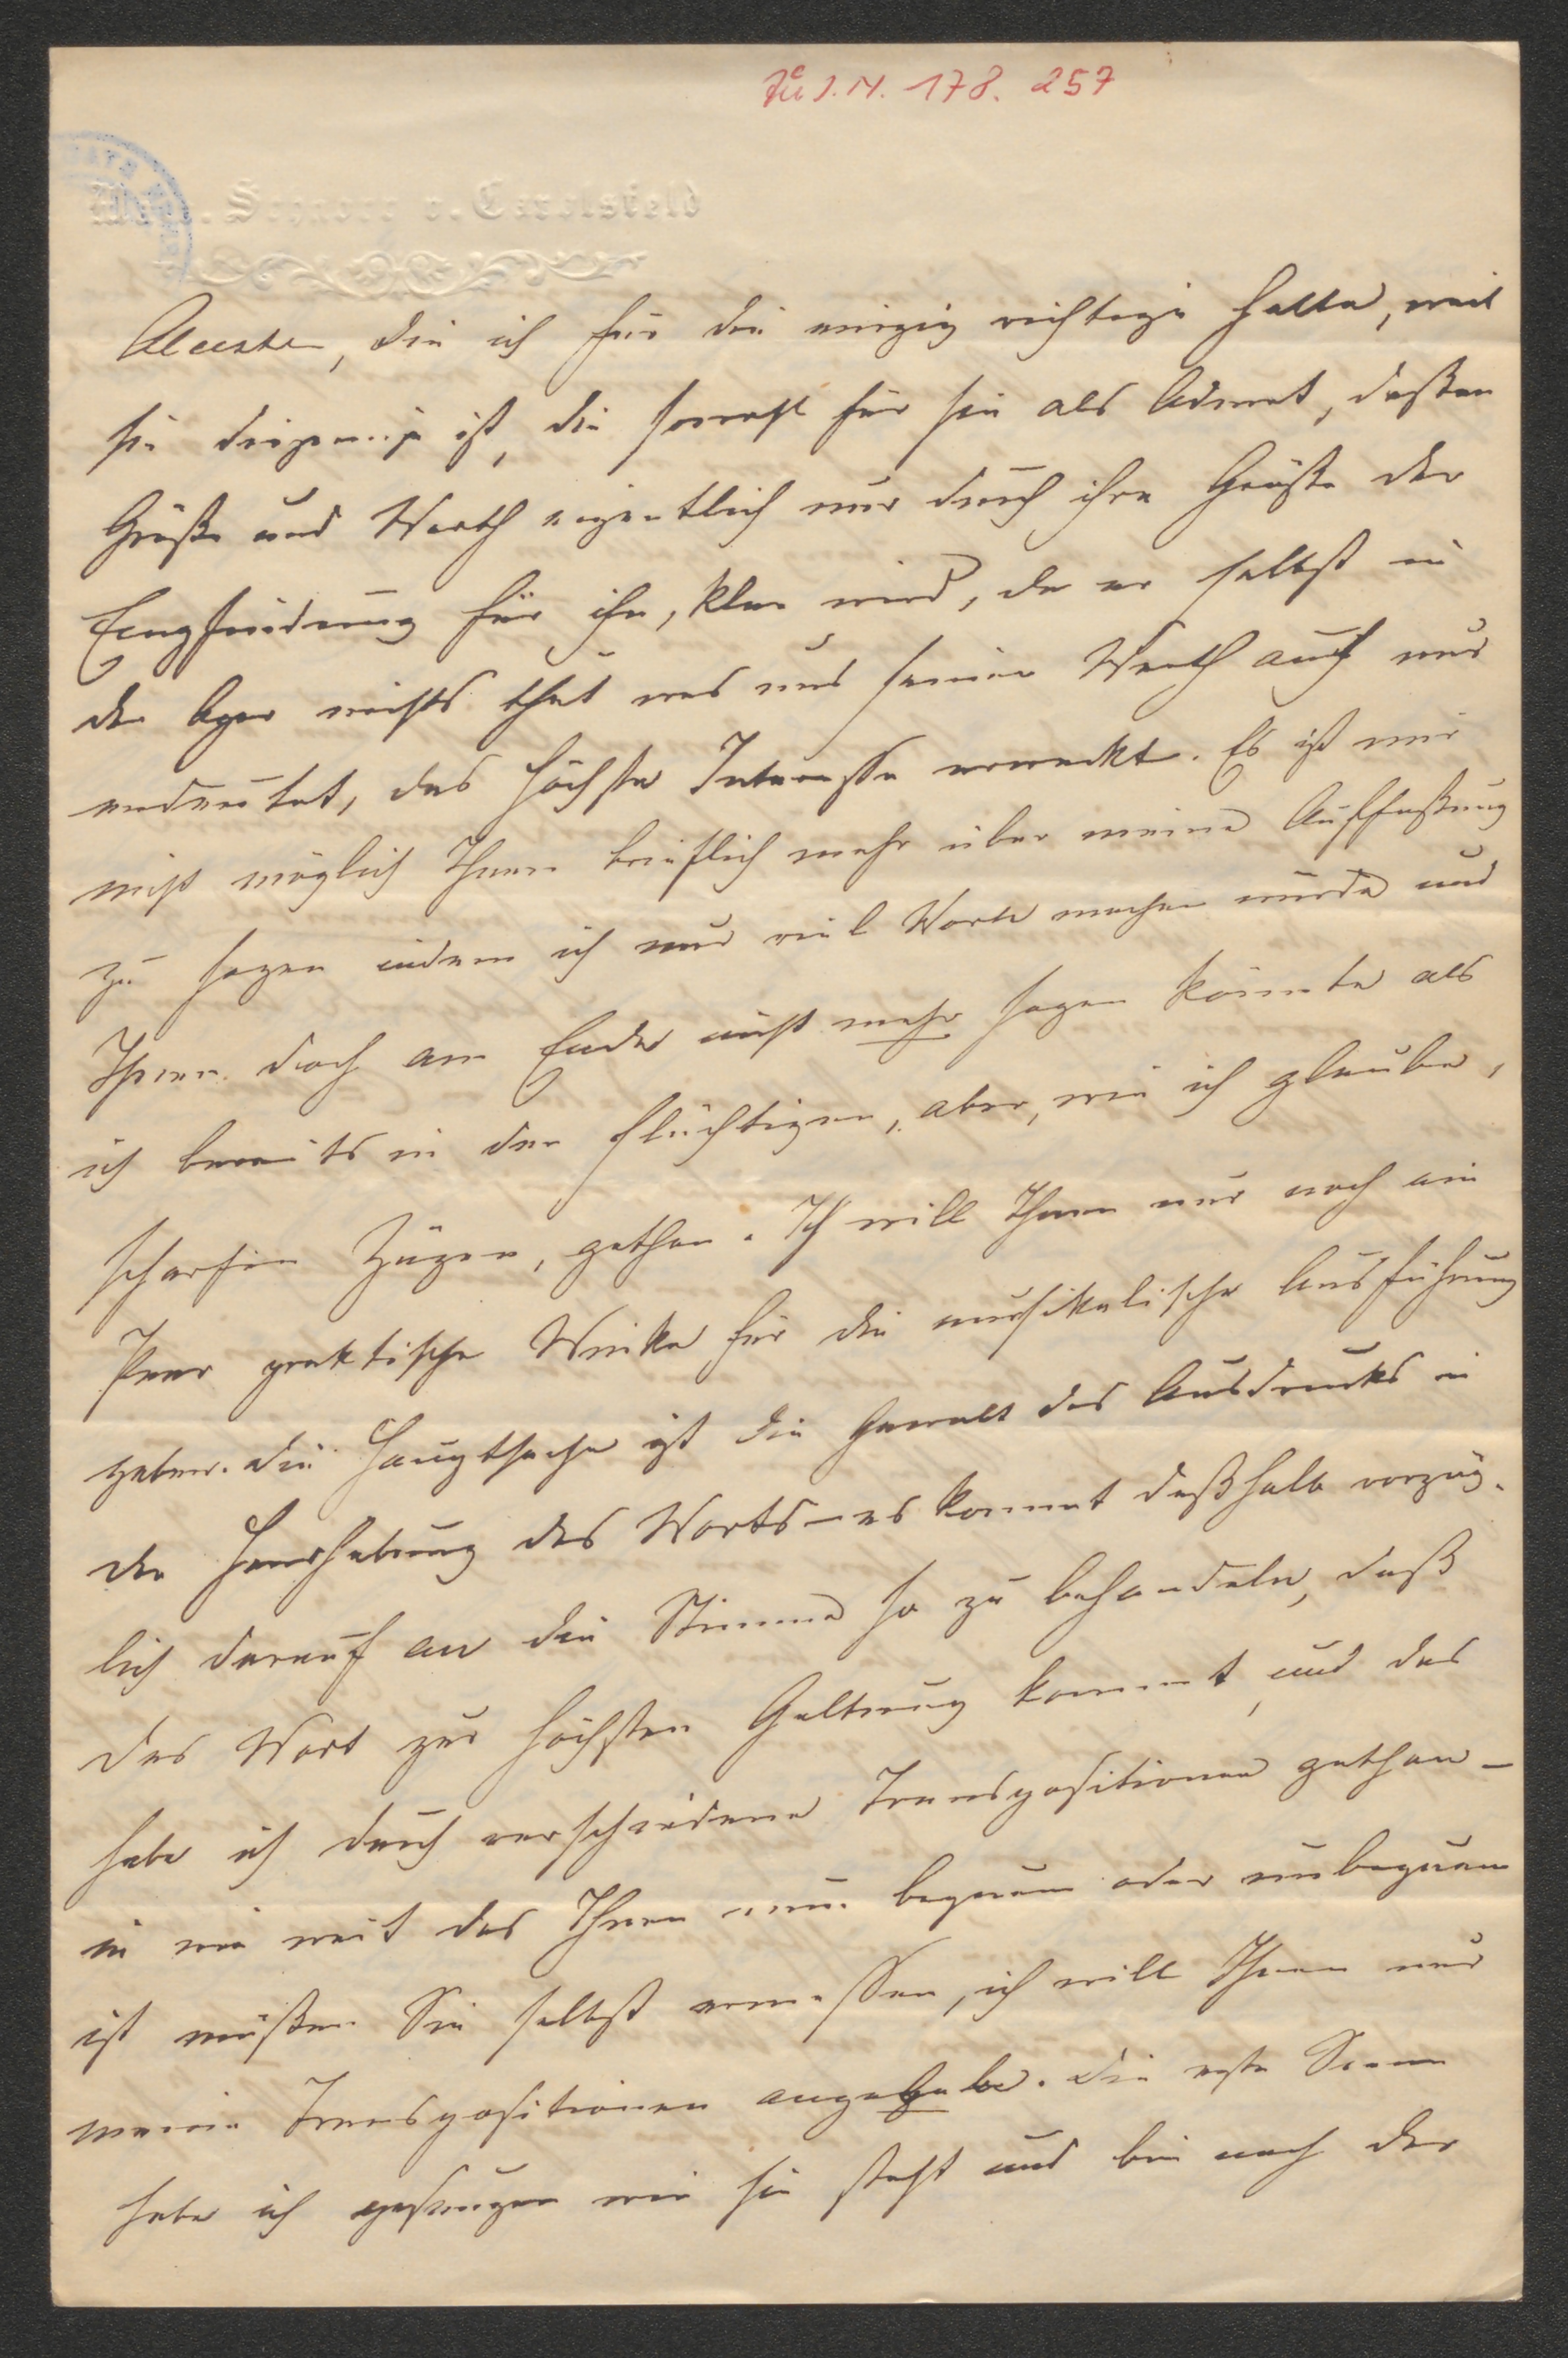 Zu I.N. 178.257
Schnorr v. Carolsfeld
Alceste, die ich für die einzig richtige halte, weil
sie diejenige ist, die sowohl für sie als Admet, deßen
Größe und Werth eigentlich nur durch ihre Größe der
Empfindung für ihn, klar wird, da er selbst in
der Oper nichts thut was uns seinen Werth auch nur
andeutet, das höchste Interesse erweckt. Es ist mir
nicht möglich Ihnen brieflich mehr über meine Auffaßung
zu sagen indem ich nur viel Worte machen würde und
Ihnen doch am Ende nicht mehr sagen könnte als
ich bereits in den flüchtigen, aber, wie ich glaube,
scharfen Zügen, gethan. Ich will Ihnen nur noch ein
Paar praktische Winke für die musikalische Ausführung
geben. Die Hauptsache ist die Gewalt des Ausdrucks in
der Handhabung des Worts – es kommt deßhalb vorzüg-
lich darauf an die Stimme so zu behandeln, daß
das Wort zur höchsten Geltung kommt, und das
habe ich durch verschiedene Transpositionen gethan –
in wie weit das Ihnen nun bequem oder unbequem
ist müßen Sie selbst ermessen, ich will Ihnen nur
meine Transpositionen angeben. Die erste Scene
habe ich gesungen wie sie steht und bin nach der